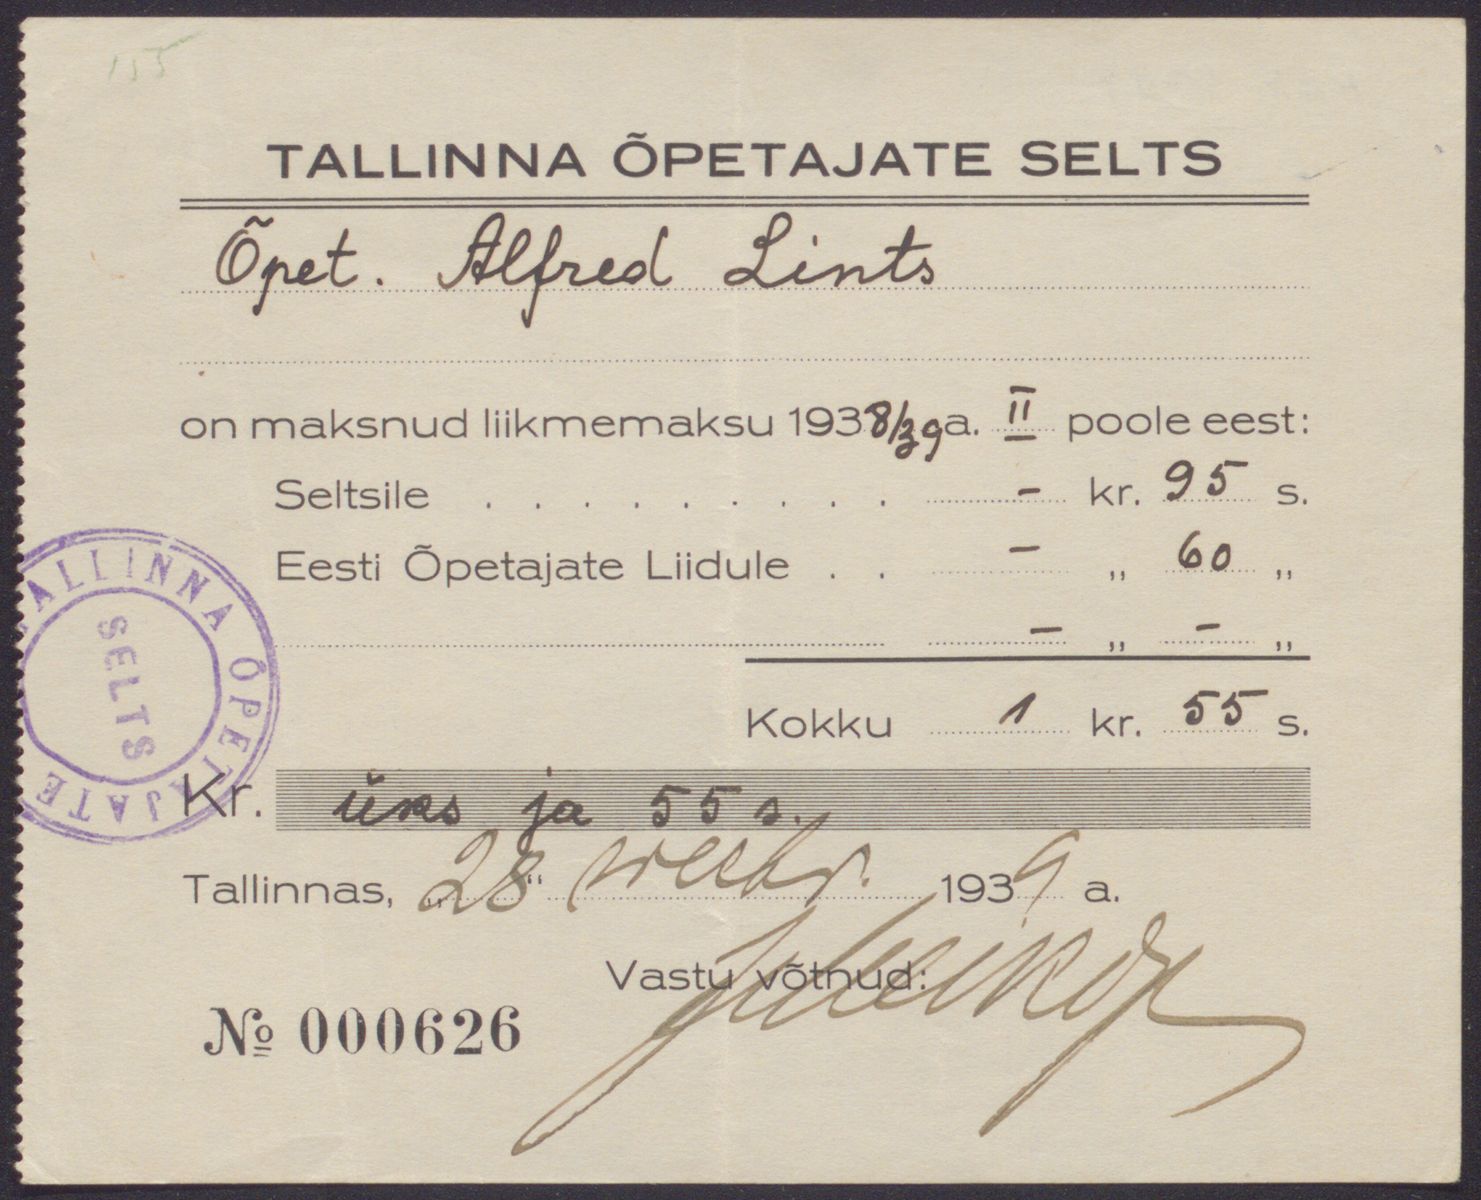 155
TALLINNA ÕPETAJATE SELTS
Õpet. Alfred Lints
on maksnud liikmemaksu 1938/39 a. II poole eest:
Seltsile . . . . . . . . . - kr. 95 s.
Eesti Õpetajate Liidule . . - „ 60 „
- „ - „
Kokku 1 kr. 55 s.
Kr. üks ja 55 s.
Tallinnas, „28“ veebr. 1939 a.
Vastu võtnud:
№ 000626
TALLINNA ÕPETAJATE
SELTS